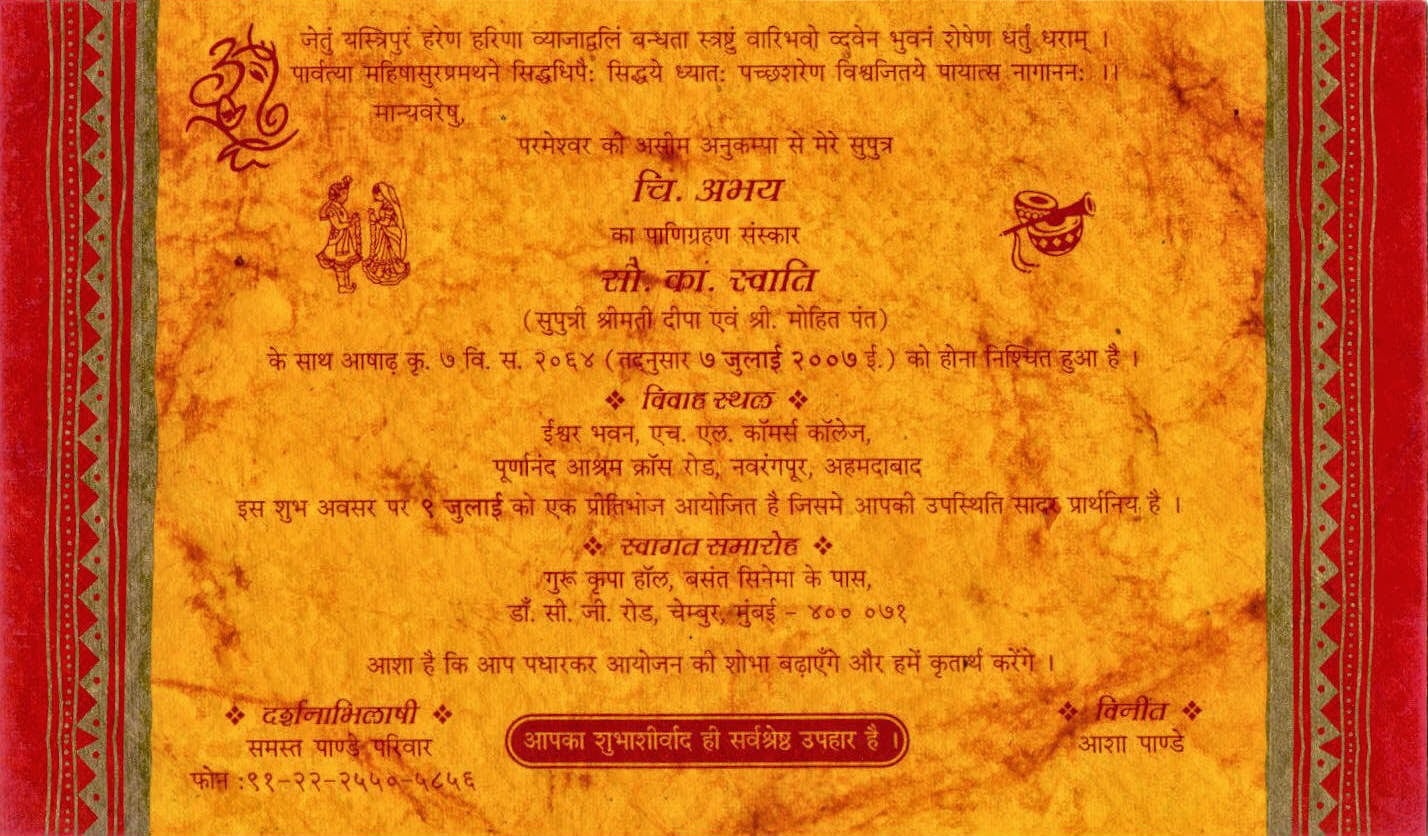 जेतुं यस्त्रिपुरं हरेण हरिणा व्याजाद्वलिं बन्धता स्त्रष्टुं वारिभवो व्दवेन भुवनं शेषेण धर्तुं धराम् ।
पार्वत्या महिषासुरप्रमथने सिद्धधिपै: सिद्धये ध्यात: पच्छशरेण विश्वजितये पायात्स नागानन: ।।
मान्यवरेषु,
परमेश्वर की असीम अनुकम्पा से मेरे सुपुत्र
चि. अभय
का पाणिग्रहण संस्कार
सौ. कां. स्वाति
(सुपुत्री श्रीमती दीपा एवं श्री. मोहित पंत)
के साथ आषाढ़ कृ. ७ वि. स. २०६४ (तद्नुसार ७ जुलाई २००७ ई.) को होना निश्चित हुआ है ।
❖ विवाह स्थल ❖
ईश्वर भवन, एच. एल. कॉमर्स कॉलेज,
पूर्णानंद आश्रम क्रॉस रोड, नवरंगपूर, अहमदाबाद
इस शुभ अवसर पर ९ जुलाई को एक प्रीतिभोज आयोजित है जिसमे आपकी उपस्थिति सादर प्रार्थनिय है ।
❖ स्वागत समारोह ❖
गुरू कृपा हॉल, बसंत सिनेमा के पास,
डाँ. सी. जी. रोड, चेम्बुर, मुंबई - ४०० ०७१
आशा है कि आप पधारकर आयोजन की शोभा बढ़ाएँगे और हमें कृतार्थ करेंगे ।
❖ दर्शनाभिलाषी ❖
समस्त पाण्डे परिवार
फोन :९१-२२-२५५०-५८५६
आपका शुभाशीर्वाद ही सर्वश्रेष्ठ उपहार है ।
❖ विनीत ❖
आशा पाण्डे